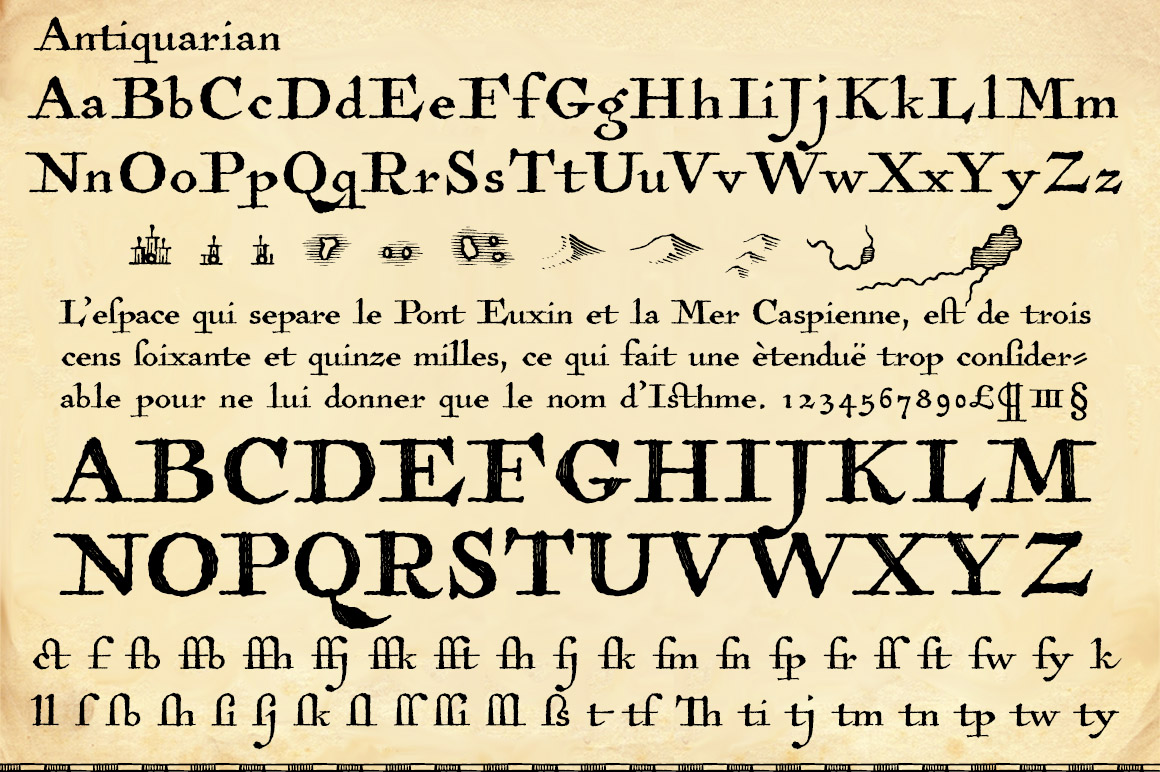 Antiquarian
AaBbCcDdEeFfGgHhIiJjKkLlMm
NnOoPpQqRrSsTtUuVvWwXxYyZz
L'eſpace qui separe le Pont Euxin et la Mer Caspienne, eſt de trois
cens ſoixante et quinze milles, ce qui fait une ètenduë trop conſider⸗
able pour ne lui donner que le nom d'Iſthme. 1234567890£¶III§
ABCDEFGHIJKLM
NOPQRSTUVWXYZ
ct f fb ffb ffh ffj ffk fft fh fj fk fm fn fp fr ff ft fw fy k
ll ſ ſb ſh ſi ſj ſk ſl ſſ ſſi ſſl ß t tf Th ti tj tm tn tp tw ty